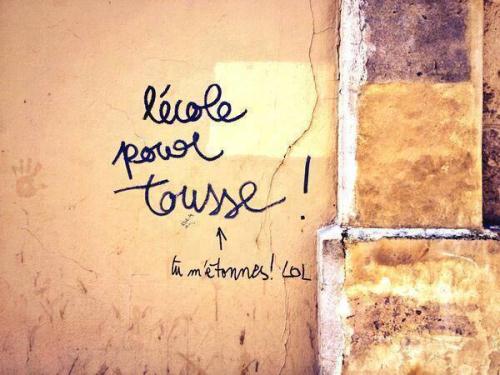 l'école
pour
tousse !
tu m'étonnes! LOL